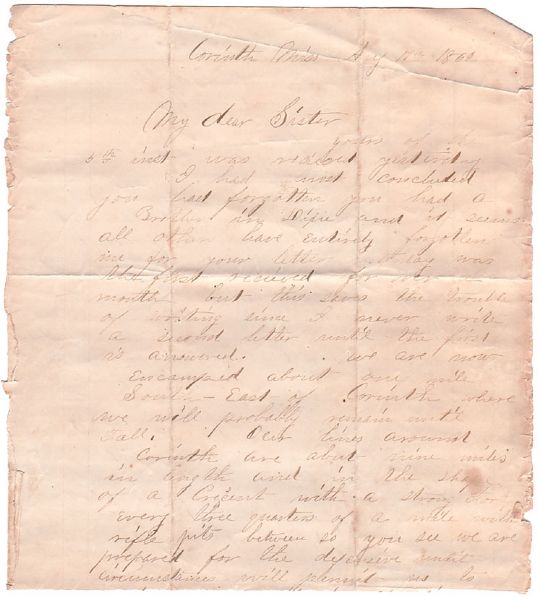 Corinth Miss
My dear Sister
yours of
5th inst was recieved yesterday
I had most concluded
you had forgotten you had a
Brother in Dixie and it seems
all other have entirely forgotten
me for your letter was
the first recieved for over a
month but this saves the trouble
of writing since I never write
a second letter until the first
is answered. We are now
Encamped about one mile
South-East of Corinth where
we will probably remain until
Fall. Our lines around
Corinth are about nine miles
in length and in the
of a Crecent with a strong
Every three quarters of a mile with
rifle pits between so you see we are
prepared for the defensive until
circumstances will permit us to